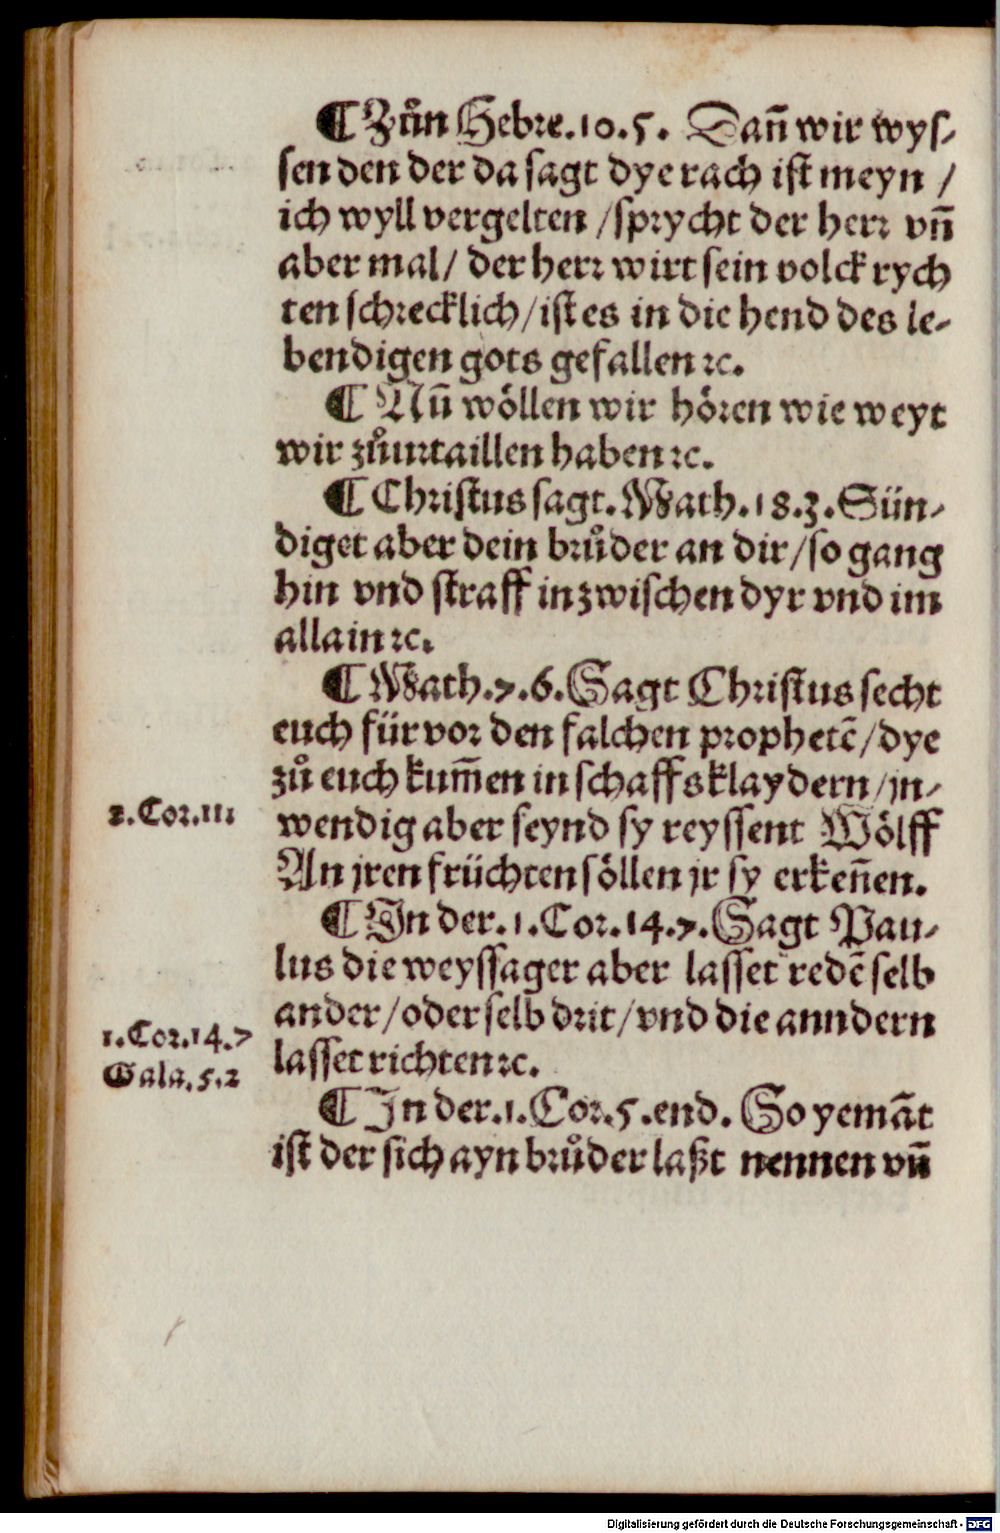 ¶ Zůn Hebre.10.5. Dañ wir wys-
sen den der da sagt dye rach ist meyn /
ich wyll vergelten / sprycht der herr vñ
aber mal / der herr wirt sein volck rych
ten schrecklich / ist es in die hend des le-
bendigen gots gefallen ꝛc.
¶ Nũ wöllen wir hören wie weyt
wir zůurtaillen haben ꝛc.
¶ Christus sagt. Math.18.3. Sün-
diget aber dein brůder an dir / so gang
hin vnd straff in zwischen dyr vnd im
allain ꝛc.
¶ Math.7.6. Sagt Christus secht
euch für vor den falchen prophetē / dye
zů euch kum̄en in schaffsklaydern / jn-
2.Cor.11
wendig aber seynd sy reyssent Wölff
An jren früchten söllen jr sy erkeñen.
¶ In der.1.Cor.14.7. Sagt Pau-
lus die weyssager aber lasset redē selb
ander / oder selb drit / vnd die anndern
1.Cor.14.7
lasset richten ꝛc.
Gala.5.2
¶ In der.1.Cor.5.end. So yemāt
ist der sich ayn brůder laßt nennen vñ
Digitalisierung gefördert durch die Deutsche Forschungsgemeinschaft - DFG